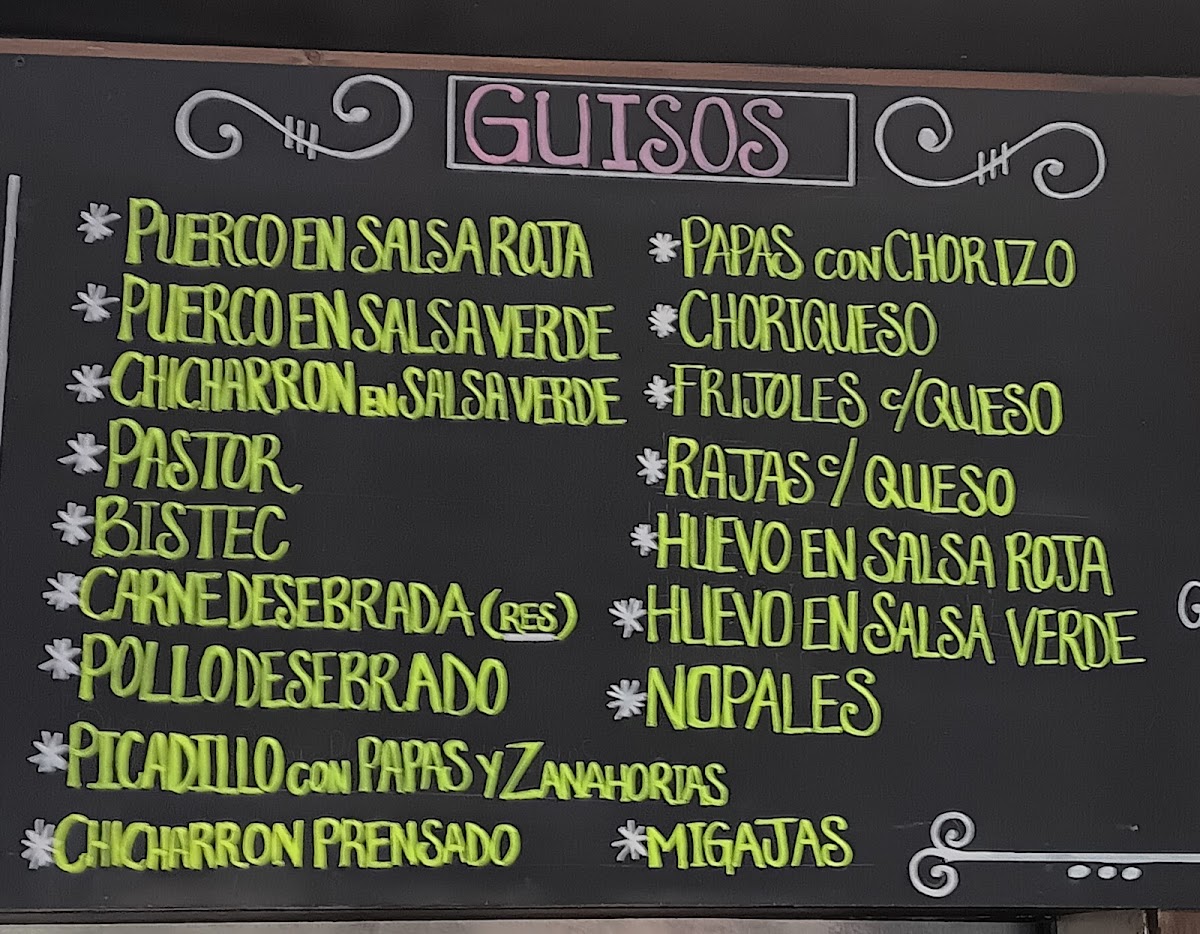 GUISOS
* PUERCO EN SALSA ROJA
* PUERCO EN SALSA VERDE
* CHICHARRON EN SALSA VERDE
* PASTOR
* BISTEC
* CARNE DESEBRADA (RES)
* POLLO DESEBRADO
* PICADILLO CON PAPAS Y ZANAHORIAS
* CHICHARRON PRENSADO
* PAPAS CON CHORIZO
* CHORIQUESO
* FRIJOLES c/QUESO
* RAJAS c/ QUESO
* HUEVO EN SALSA ROJA
* HUEVO EN SALSA VERDE
* NOPALES
* MIGAJAS